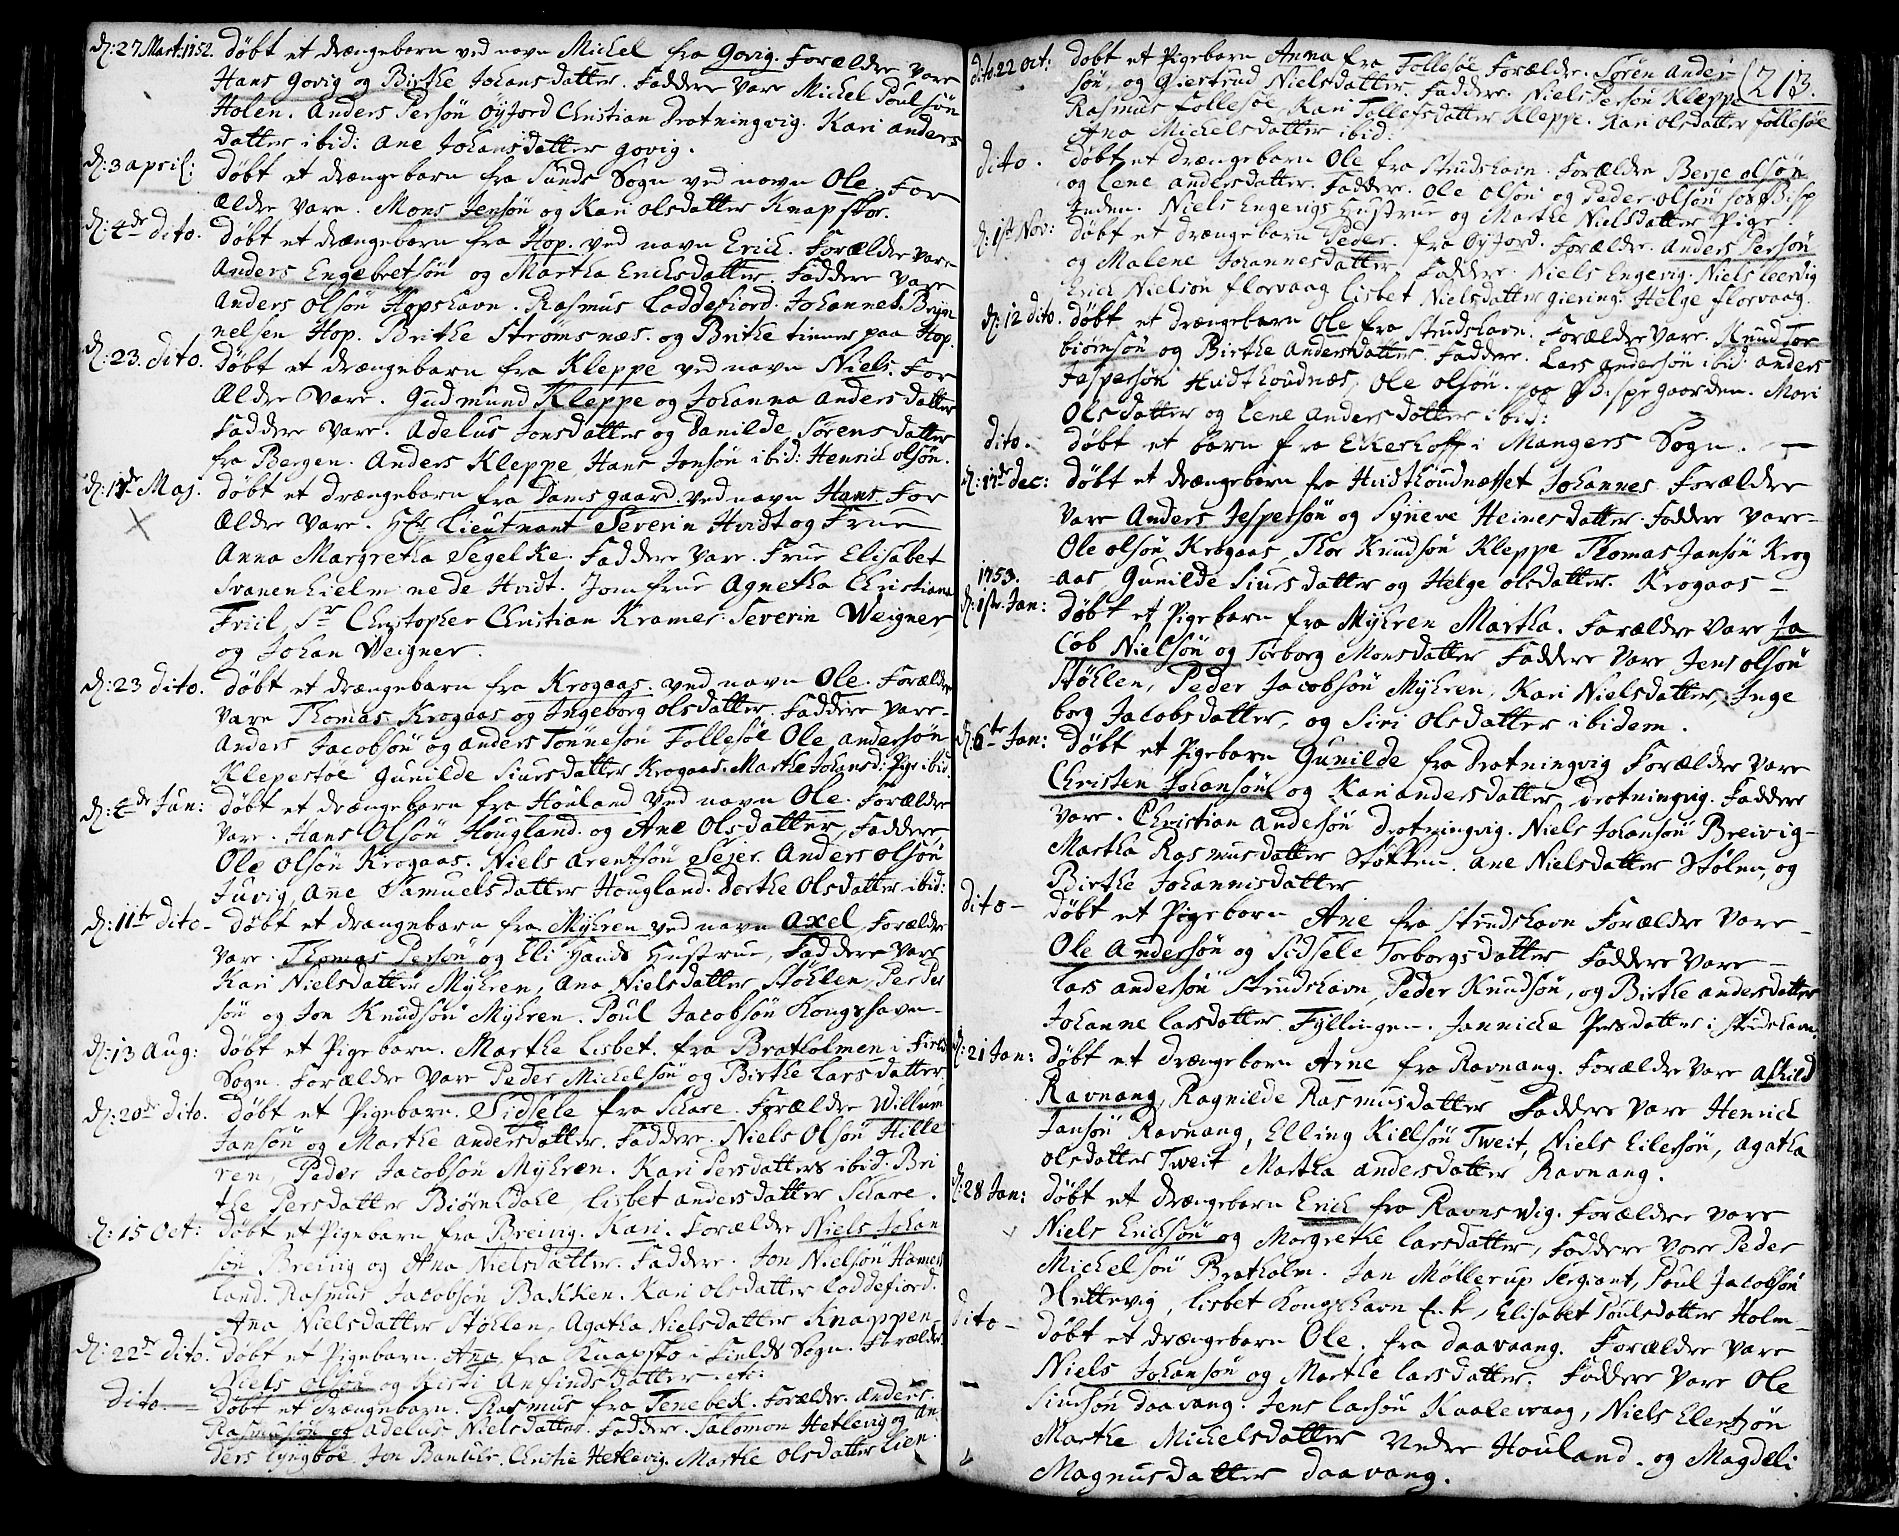 d: 27 Mart: 1752. døbt et drængebarn ved navn Michel fra Govig. Forældre vare
Hans Govig og Birthe Johansdatter. Faddere vare Michel Poulsøn
Holen. Anders Persøn Øyjord Christian Drotningvig. Kari Anders
datter ibid: Ane Johansdatter govig.
d: 3 april: døbt et drængebarn fra Sunds Sogn ved navn Ole. For
ældre vare. Mons Jensøn og Kari olsdatter Knapskor.
d: 4de dito. døbt et drængebarn fra Hop. ved navn Erick. Forældre vare
Anders Engebretsøn og Martha Ericksdatter. Faddere vare
Anders Olsøn Hopshavn. Rasmus Laddefiord. Johannes
nelsen Hop. Brithe Strømsnæs. og Brithe tiener paa Hop.
d: 23. dito. døbt et drængebarn fra Kleppe ved navn Niels. For
Ældre vare. Gudmund Kleppe og Johanna Andersdatter
Faddere vare. Adelus Jonsdatter og Danilde Sørensdatter
fra Bergen. Anders Kleppe Hans Jonsøn ibid: Henrich olsøn.
Maj. døbt et drængebarn fra Damsgaard. ved navn Hans. For
Ældre vare. Hr Lieutnant Severin Hvidt og Frue
Anna Margretha Segelke. Faddere vare. Frue Elisabet
Svanenhielm nede Hvidt. Jomfrue Agnetha Christiana
Friil, Sr Christopher Christian Kramer. Severin Weigner,
og Johan Weigner.
d: 23 dito. døbt et drængebarn fra Krogaas. ved navn Ole. Forældre
vare Thomas Krogaas og Ingeborg olsdatter. Faddere vare.
Anders Jacobsøn og anders Tønnesøn Follesøe Ole andersøn
Klepestøe Gunilde Siursdatter Krogaas. Marthe Johansd: Pige ibid.
d: 4de Jun: døbt et drængebarn fra Houland ved navn Ole. Forældre
vare. Hans Olsøn Hougland. og Ane Olsdatter, Faddere
Ole olsøn Krogaas. Niels arentsøn Sejer. Anders olsøn
Juvig, Ane Samuelsdatter Hougland. Dorthe Olsdatter ibid:
d: 11te dito - døbt et drængebarn fra Myhren ved navn Axel Forældre
vare. Thomas Persøn og Eli Hands Hustrue, Faddere vare
Kari Nielsdatter Myhren, Ana Nielsdatter Støhlen, Per Per
søn og Jon Knudsøn Myhren. Poul Jacobsøn Kongshavn-
d: 13 Aug: døbt et Pigebarn. Marthe Lisbet. fra Bratholmen i Field
Sogn. Forældre vare Peder Michelsøn og Birthe Larsdatter
d: 20de dito. døbt et Pigebarn. Sidsele fra Schare. Forældre Willum
Jansøn og Marthe Andersdatter. Faddere. Niels Olsøn Hille
ren, Peder Jacobsøn Myhren. Kari Persdatter ibid. Bri
the Persdatter Biørndahl, Lisbet andersdatter Schare.
d: 15 Oct: døbt et Pigebarn fra Breivig. Kari. Forældre Niels Johan
søn Breivig og Ana Nielsdatter. Faddere. Jon Nielsøn Hamer
land. Rasmus Jacobsøn Bakken. Kari olsdatter Loddefiord.
Ana Nielsdatter Støhlen. Agatha Nielsdatter Knappen.
d: 22de dito. døbt et Pigebarn. Ana, fra Knapsko i Fields Sogn. Forældre.
Niels Olsøn og Kirsti Anfindsdatter etc:
dito.- døbt et drængebarn. Rasmus fra Tenebek. Forældre. Anders
Rasmusøn og Adelus Nielsdatter. Fadder. Salomon Hetlevig og An
ders Lyngbøe. Jon Christie Hetlevig. Marthe Olsdatter Lien.
(213.
dito 22 oct: døbt et Pigebarn Anna fra Follesøe Forældre. Søren Ander
søn, og Giertrud Nielsdatter. Faddere. Niels Persøn Kleppe
Rasmus Follesøe. Kari Tollefsdatter Kleppe. Kari olsdatter Follesøe
Ana Michelsdatter ibid:
dito. døbt et drængebarn Ole fra Strudshavn. Forældre Berje olsøn
og Lene andersdatter. Faddere. Ole olsøn og Peder olsøn hos Bisp
Inden. Niels Engevigs Hustrue og Marthe Nielsdatter Pige.
d: 1ste Nov: døbt et drængebarn Peder. fra Øyjord. Forældre. Anders Persøn
og Malene Johannesdatter Faddere. Niels Engevig. Niels Leervig
Erich Nielsøn Florvaag Lisbet Nielsdatter giering. Helge florvaag.
d: 12 dito. døbt et drængebarn Ole fra Strudshavn. Forældre vare. Knud Tor
biørnsøn og Birthe Andersdatter. Faddere. Lars andersøn ibid: anders
Jespersøn Hvidthoudnæs, Ole olsøn. paa Bispegaarden. Mari
Olsdatter og Lene Andersdatter ibid:
dito. døbt et barn fra Ekerhoff i Mangers Sogn.
d: 17de Dec: døbt et drængebarn fra Hvidthoudnæsset Johannes Forældre
vare Anders Jespersøn og Syneve Heinesdatter. Faddere vare-
Ole olsøn Krogaas, Thor Knudsøn Kleppe Thomas Jansøn Krog
aas Gunilde Siursdatter og Helge olsdatter. Krogaas-
1753.
d: 1ste Jan: døbt et Pigebarn fra Myhren Martha. Forældre vare Ja
cob Nielsøn og Torborg Monsdatter Faddere vare Jens olsøn
Støhlen, Peder Jacobsøn Myhren, Kari Nielsdatter, Inge
borg Jacobsdatter, og Siri Olsdatter ibidem.
d: 6te Jan: døbt et Pigebarn Gunilde fra Drotningvig Forældre vare
Christen Johansøn og Kari andersdatter, Drotningvig. Faddere
vare. Christian andersøn Drotningvig. Niels Johansøn Breivig-
Martha Rasmusdatter Støkken. ane Nielsdatter Stølen, og
Birthe Johannisdatter
dito - døbt et Pigebarn Ane fra Strudshavn Forældre vare-
Ole Andersøn og Sidsele Torborgsdatter Faddere vare-
Lars andersøn Strudshavn, Peder Knudsøn, og Birthe andersdatter
Johanne Larsdatter Fyllingen. Jannicke Persdatter i Strudshavn.
d: 21 Jan: døbt et drængebarn Arne fra Ravnang. Forældre vare Askild
Ravnang, Ragnilde Rasmusdatter Faddere vare Henrick
Jansøn Ravnang, Elling Kielsøn Tweit, Niels Eilersøn, Agatha
olsdatter Tweit Martha andersdatter Ravnang.
d: 28 Jan: døbt et drængebarn Erich fra Ravnsvig. Forældre vare
Niels Erichsøn og Margrethe Larsdatter, Faddere vare Peder
Michelsøn Bratholm. Jan Møllerup Sergiant, Poul Jacobsøn
Hettevig, Lisbet Kongshavn Enke, Elisabet Poulsdatter Holm-
dito - døbt et drængebarn Ole. fra daavaang. Forældre vare
Niels Johansøn og Marthe Larsdatter. Faddere vare Ole
Siursøn daavang. Jens Larsøn Kaalevaag, Niels Elertsøn
Marthe Michelsdatter Nedre Houland. og Magdeli
Magnusdatter daavang.